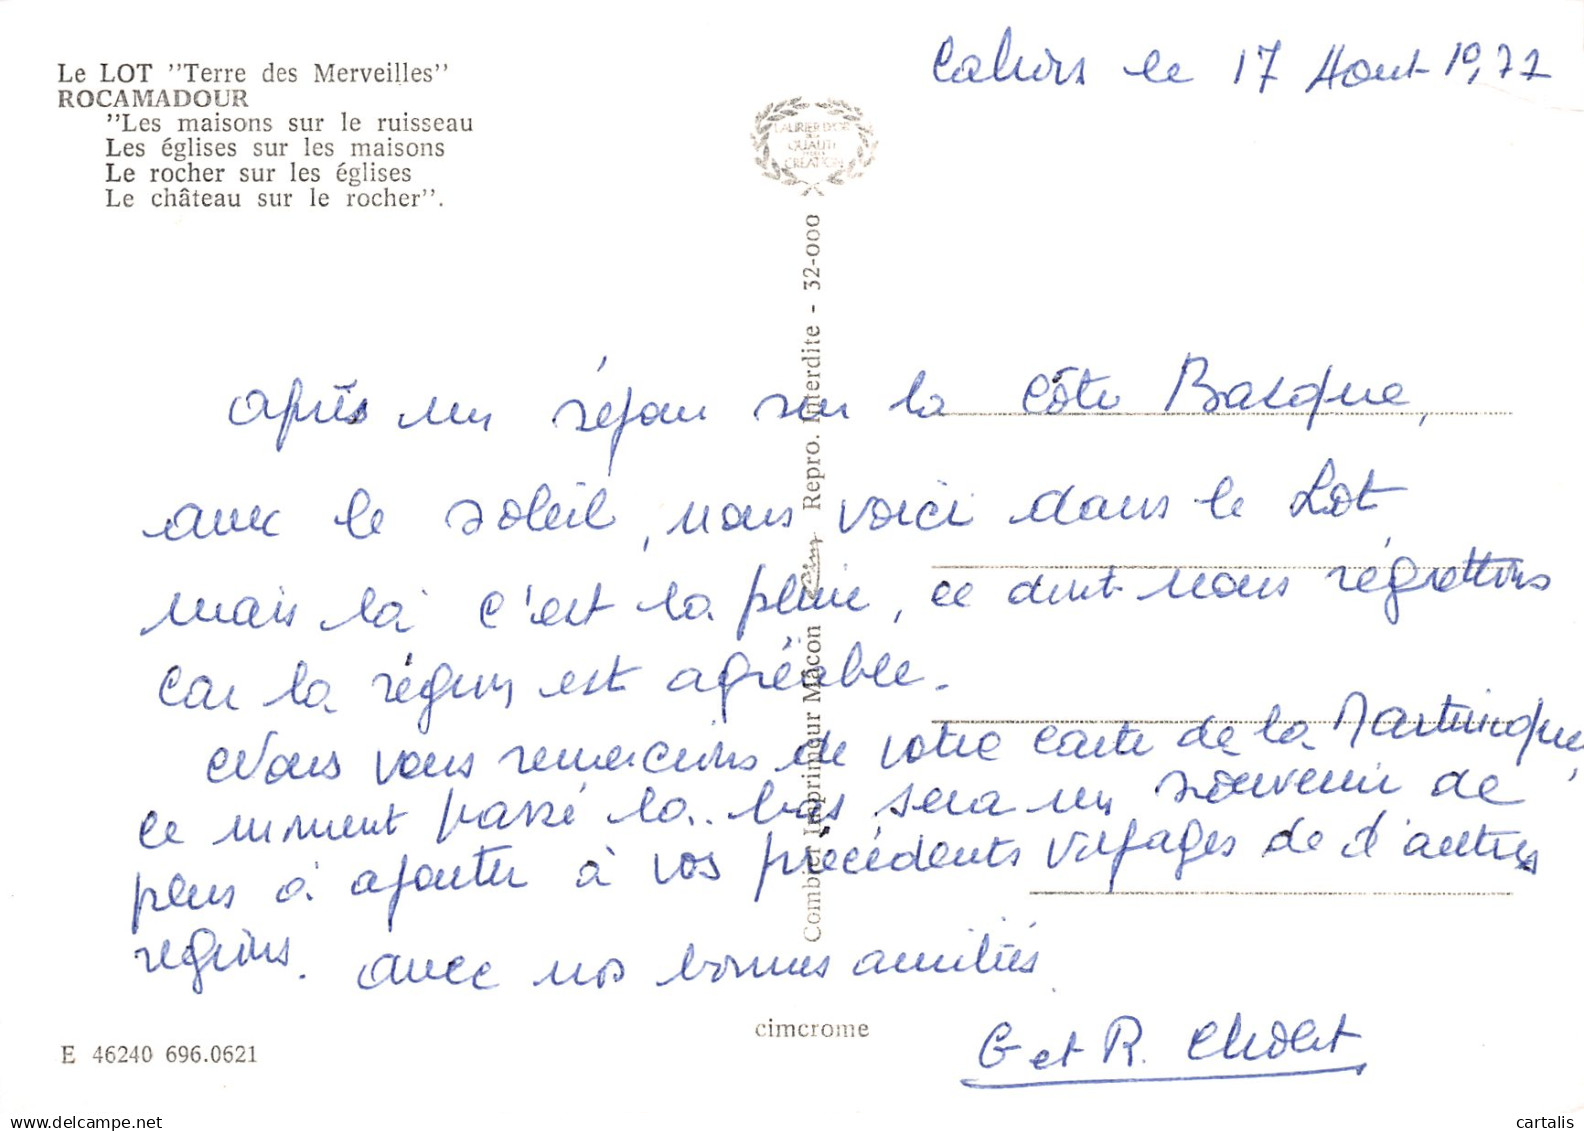 Le LOT "Terre des Merveilles"
ROCAMADOUR
"Les maisons sur le ruisseau
Les églises sur les maisons
Le rocher sur les églises
Le château sur le rocher".
Cahors le 17 Aout 1977
LAURIER D'OR
DE LA
QUALITÉ
CREATION
Combier Imprimeur Mâcon Cim Repro. Interdite - 32-000
après un séjour sur la Côte Basque,
avec le soleil, nous voici dans le Lot
mais là c'est la pluie, ce dont nous régrettons
car la région est agréable.
Nous vous remercions de votre carte de la Martinique,
ce moment passé la.. bas sera un souvenir de
plus à ajouter à vos précédents voyages de d'autres
regions. avec nos bonnes amitiés
G et R. Cholet
cimcrome
E 46240 696.0621
delcampe.net
cartalis